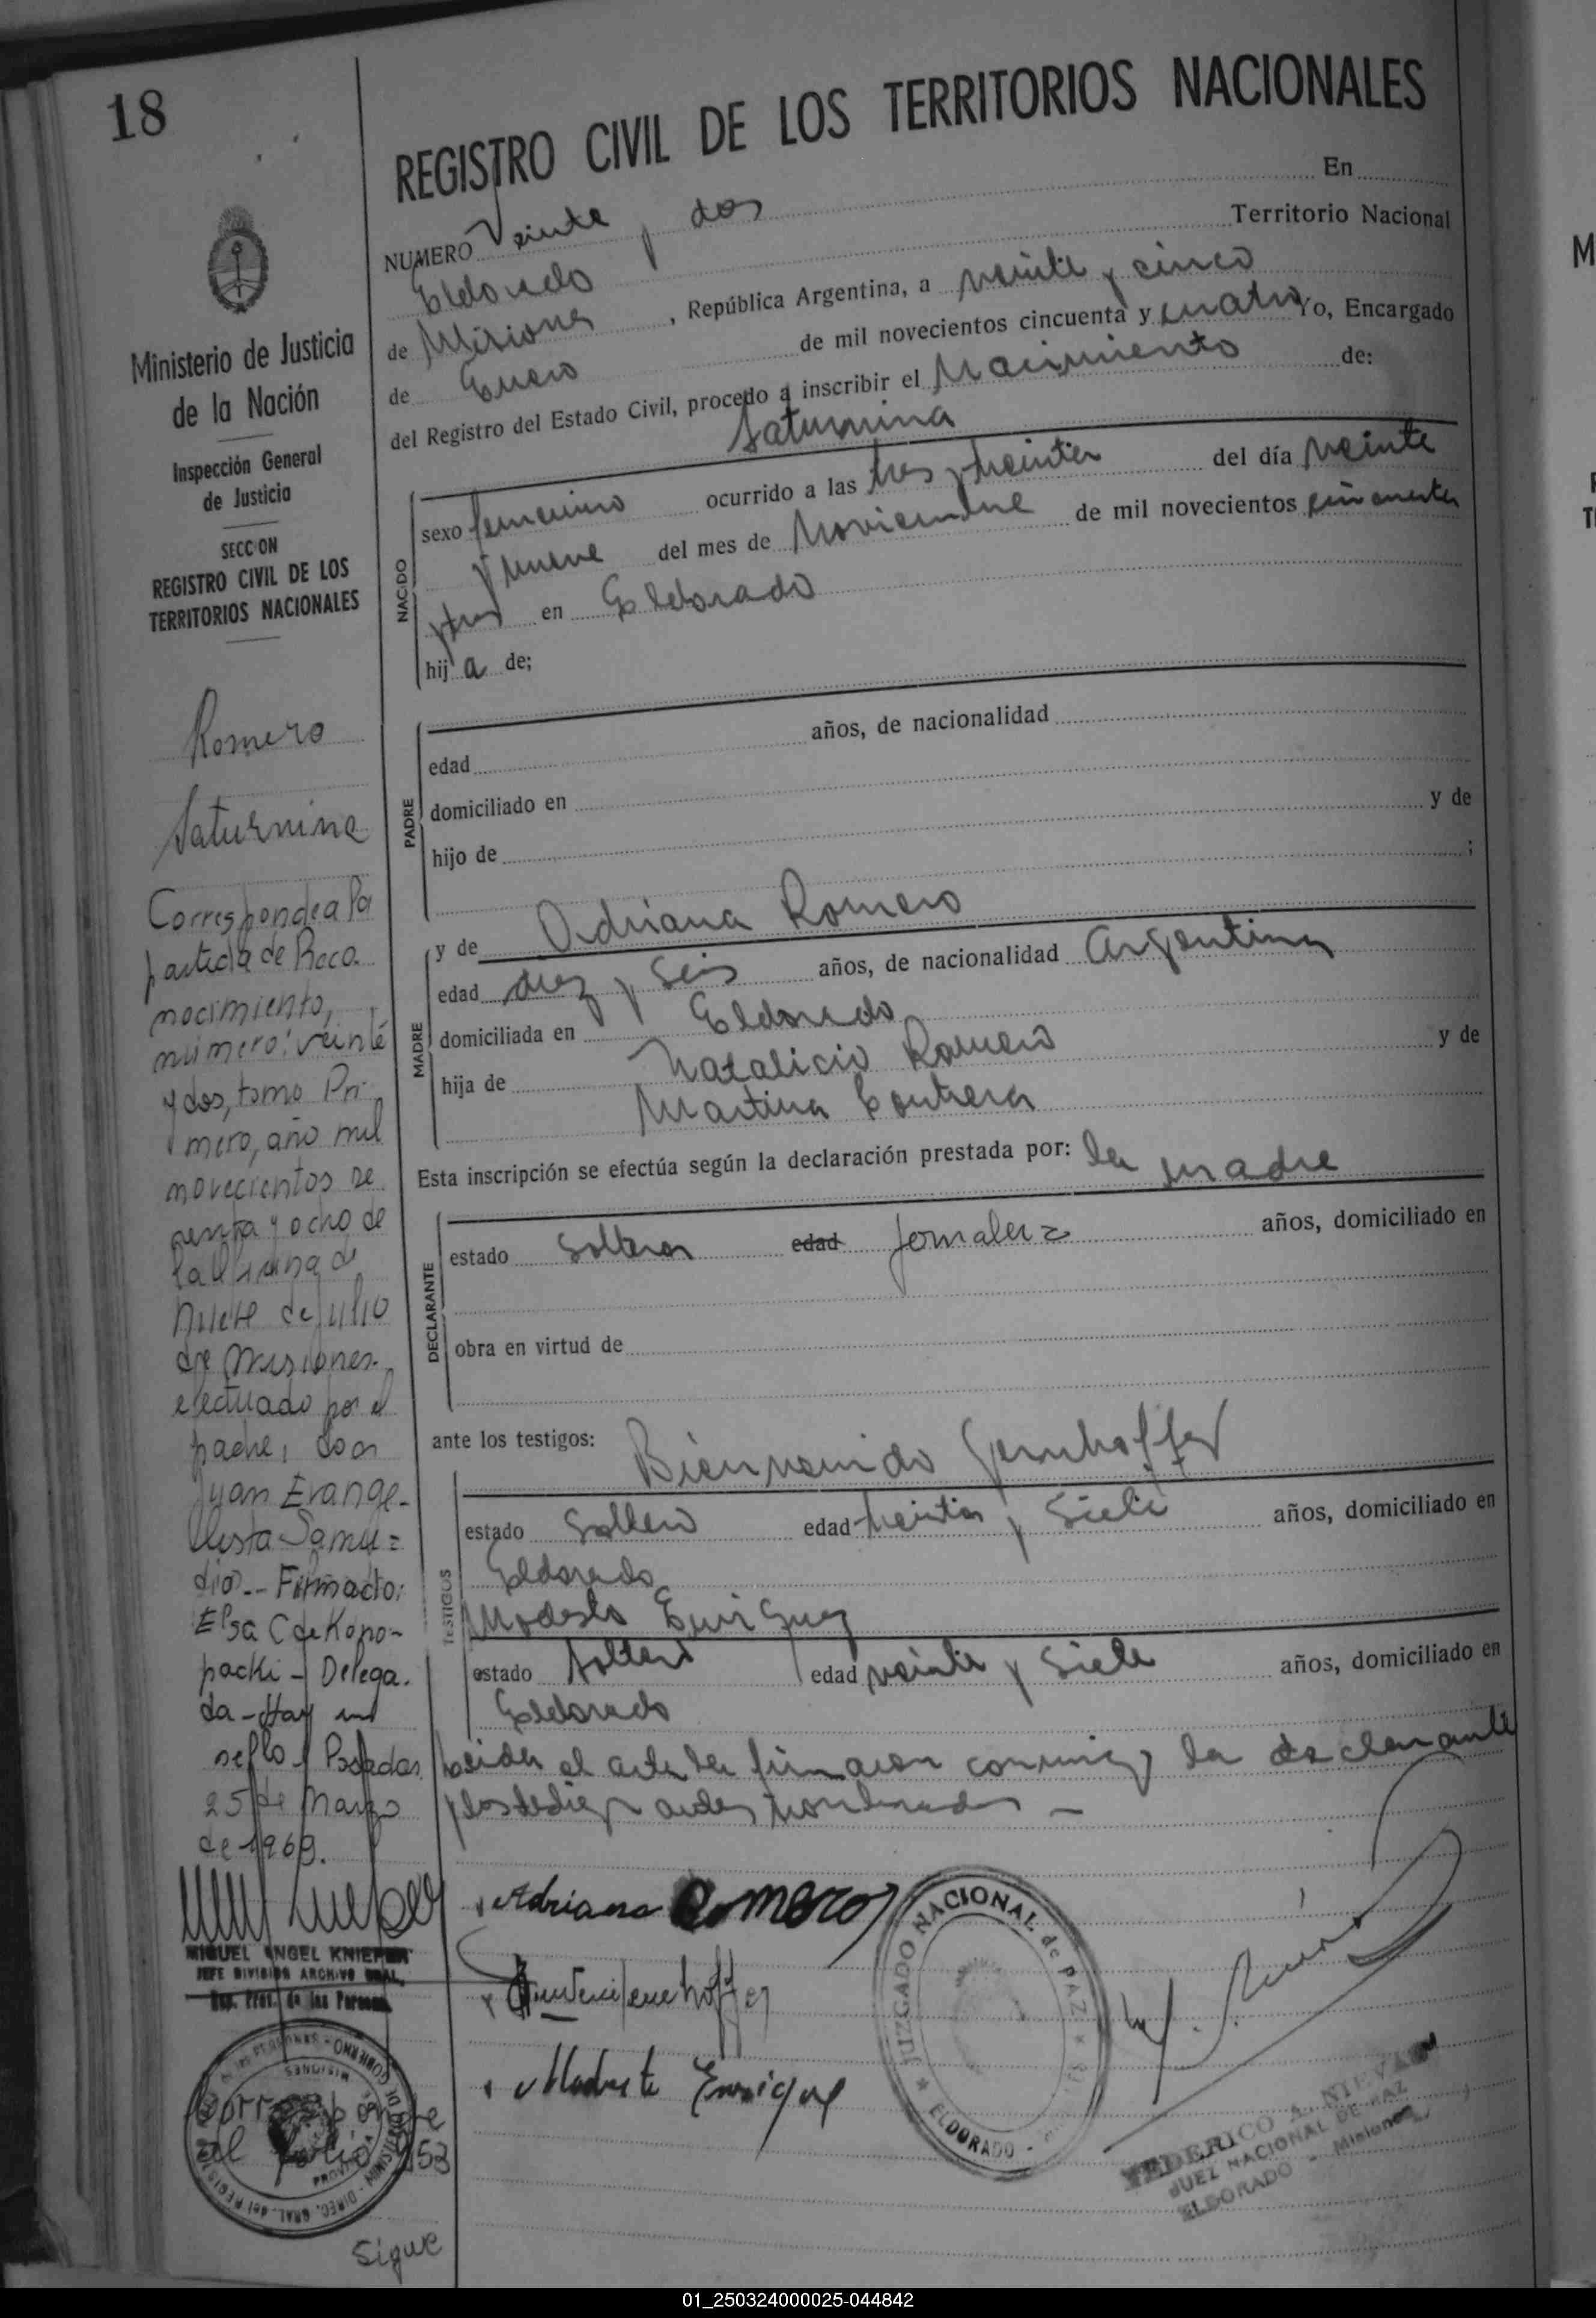 18
REGISTRO CIVIL DE LOS TERRITORIOS NACIONALES
NUMERO Veinte y dos En
Eldorado Territorio Nacional
de Misiones, República Argentina, a veinte y cinco
de Enero de mil novecientos cincuenta y cuatro Yo, Encargado
del Registro del Estado Civil, procedo a inscribir el Nacimiento de:
Saturnina
NACIDO
sexo femenino ocurrido a las tres y treinta del día veinte
y nueve del mes de Noviembre de mil novecientos cincuenta
y tres en Eldorado
hij a de;
PADRE
edad años, de nacionalidad
domiciliado en
hijo de y de
;
MADRE
y de Adriana Romero
edad diez y seis años, de nacionalidad Argentina
domiciliada en Eldorado
hija de Natalicio Romero y de
Martina
Esta inscripción se efectúa según la declaración prestada por: la madre
DECLARANTE
estado Soltera edad Jornalera años, domiciliado en
obra en virtud de
ante los testigos: Bienvenido
TESTIGOS
estado Soltero edad treinta y siete años, domiciliado en
Eldorado
Modesto Enriquez
estado Soltero edad veinte y siete años, domiciliado en
Eldorado
el acta la firmaron conmigo la declarante
y los testigos antes nombrados —
Adriana Romero
Modesto Enrique
JUZGADO NACIONAL de PAZ
ELDORADO
FEDERICO A. NIEVAS
JUEZ NACIONAL DE PAZ
ELDORADO - Misiones
Ministerio de Justicia
de la Nación
Inspección General
de Justicia
SECCION
REGISTRO CIVIL DE LOS
TERRITORIOS NACIONALES
Romero
Saturnina
Corresponde a la
partida de Reco
nocimiento,
número: veinte
y dos, tomo Pri
mero, año mil
novecientos se
senta y ocho de
la Oficina de
Nueve de Julio
de Misiones.
efectuado por el
padre, don
Juan Evange-
lista Samu=
dio -- Firmado:
Elsa C de Kopo-
packi - Delega.
da - Hay un
sello - Posadas,
25 de Marzo
de 1969.
MIGUEL ANGEL KNIEPER
JEFE DIVISION ARCHIVO GRAL.
Reg. Prov. de las Personas
MISIONES
Corresponde
al folio 953
Sigue
01_250324000025-044842